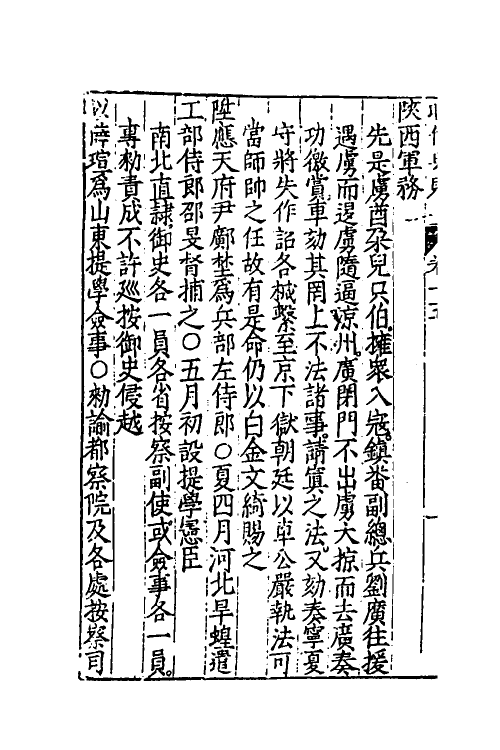 卷十五
陜西軍務
先是虜酋朶兒只伯擁衆入寇鎮番副總兵劉廣往援
遇虜而退虜隨逼凉州廣閉門不出虜大掠而去廣奏
功徼賞車劾其罔上不法諸事請寘之法又劾奏寧夏
守將失作詔各械繫至京下獄朝廷以卓公嚴執法可
當師帥之任故有是命仍以白金文綺賜之
陞應天府尹鄺埜爲兵部左侍郎○夏四月河北旱蝗遣
工部侍郎邵旻督捕之○五月初設提學憲臣
南北直隷御史各一員各省按察副使或僉事各一員
專勑責成不許廵按御史侵越
以薛瑄爲山東提學僉事○勑諭都察院及各處按察司